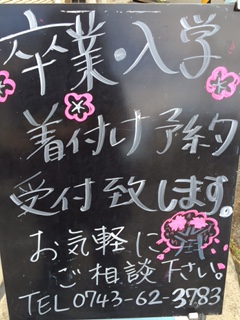 卒業・入学
着付け予約
受付致します。
お気軽に
ご相談下さい。
TEL 0743-62-3783